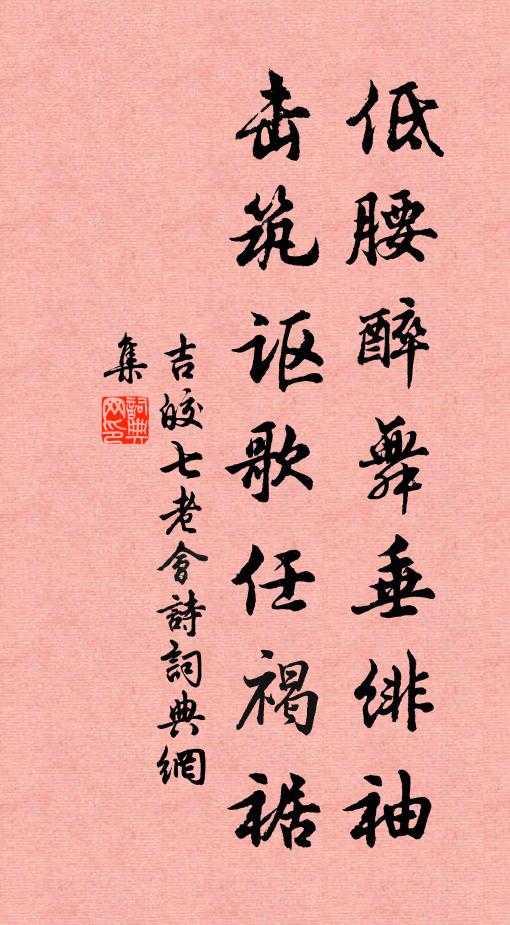 低腰醉舞垂绯袖
击筑讴歌任褐裾
吉皎七老会詩詞典網
集
詞典網印